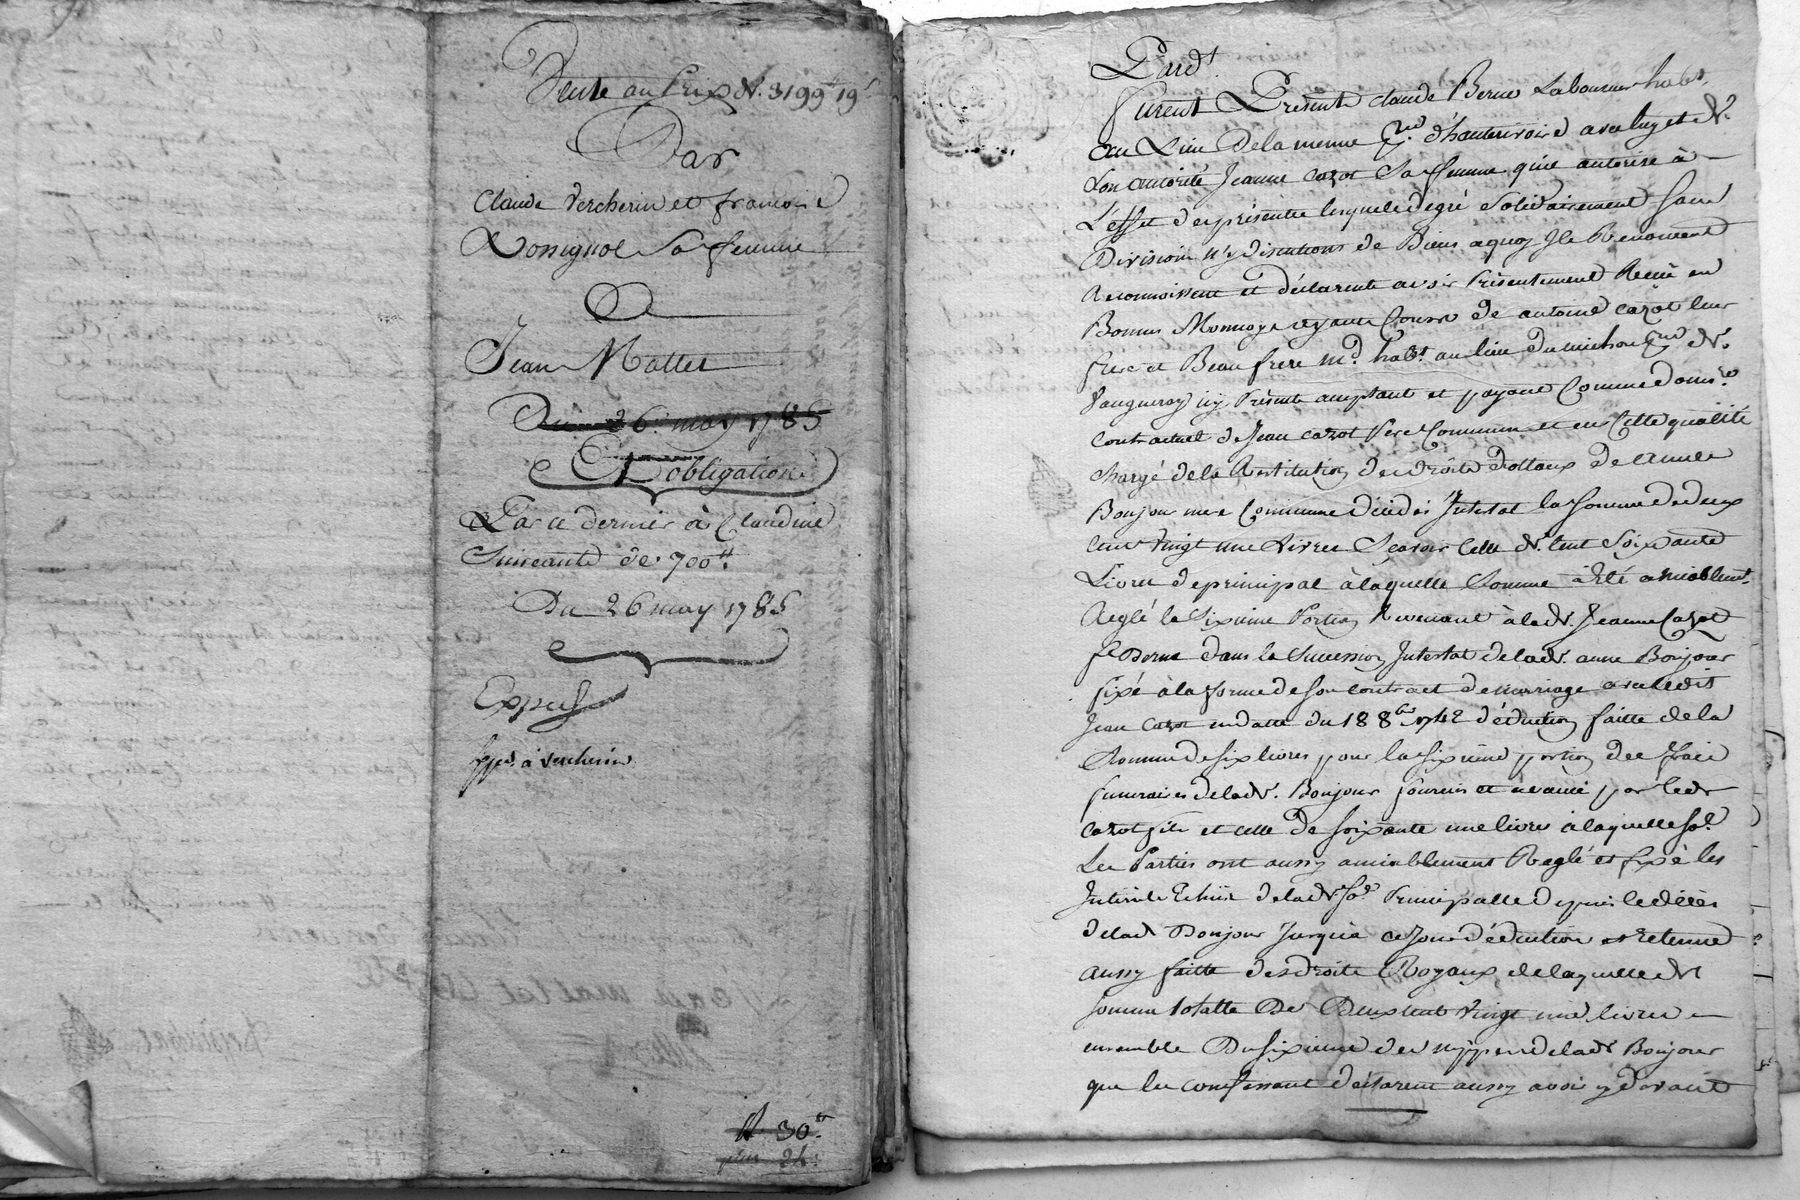 Vente au Prix de 3199# 19s
Par
Claude Vercherin et francoise
Rossignol Sa femme
A
Jean Mallet
Du 26 may 1785
Et obligation
Par ce dernier à Claudine
de 700#.
Du 26 may 1785
Exped
à Vercherin
30
24
Pard.t
furent Présents Claude Berne Laboureur habt.
au Lieu de la menue d'hauterivoire avec luy et de
Son autorité Jeanne Cazot Sa femme qu'il autorise à
L'effet des présentes lesquels de gré Solidairement Sans
Division n'y discutions de Biens aquoy Ils Renoncent
Reconnoissent et déclarent avoir Présentement Reçu en
Bonnes Monnoye ayants Cours de antoine Cazot leur
frere et Beau frere md. habt. au lieu du michon de
Vaugneray icy Présent acceptant et payant Comme donre.
Contractuel de Jean Cazot Pere Commun et en Cette qualité
Chargé de la Restitution des droits dottaux de anne
Bonjour mere Commune décédée Intestat la Somme de deux
Cent Vingt une Livres Sçavoir Celle de Cent Soixante
Livres de principal à laquelle Somme à Eté amiablemt.
Reglé la Sixieme Portion Revenant à lade. Jeanne Cazot
fe. Berne dans la Succession Intestat de lade. anne Bonjour
fixé à la forme de Son Contract de mariage avec ledit
Jean Cazot en datte du 18 8bre 1742 déduction faitte de la
Somme de Six livres pour la Sixieme portion des frais
funeraires de lade. Bonjour fournis et avancé par ledt
Cazot fils et celle de Soixante une livres à laquelle So.e
Les Parties ont aussy amiablement Reglé et fixé les
Interets Echus de lade. So.e Principalle depuis le décès
de lade Bonjour Jusqu'à ce Jour déduction et Retenue
aussy faitte des droits Royaux de laquelle de
Somme totalle De Deux Cent Vingt une livres
ensemble Du Sixieme des nippes de lade Bonjour
que les Confessant déclarent aussy avoir cy devant